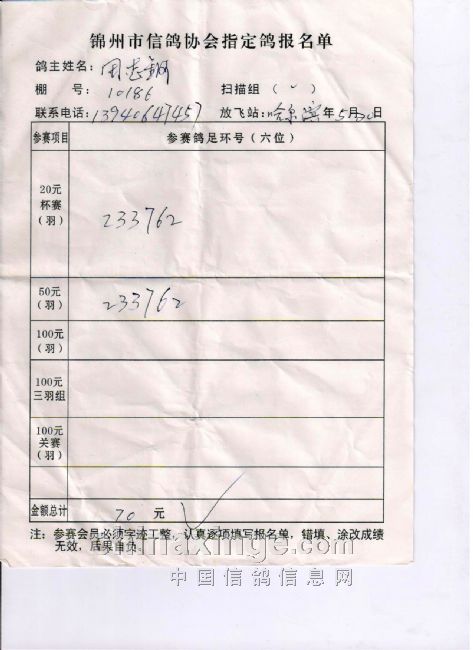 锦州市信鸽协会指定鸽报名单
鸽主姓名：周志钢
棚 号：10186 扫描组（ ）
联系电话：13940647457 放飞站：哈尔滨 年5月30日
参赛项目 参赛鸽足环号（六位）
20元
杯赛
（羽）
233762
50元
（羽）
233762
100元
（羽）
100元
三羽组
100元
关赛
（羽）
金额总计 70 元
注：参赛会员必须字迹工整，认真逐项填写报名单，错填、涂改成绩
无效，后果自负
chinaxinge.com
中国信鸽信息网